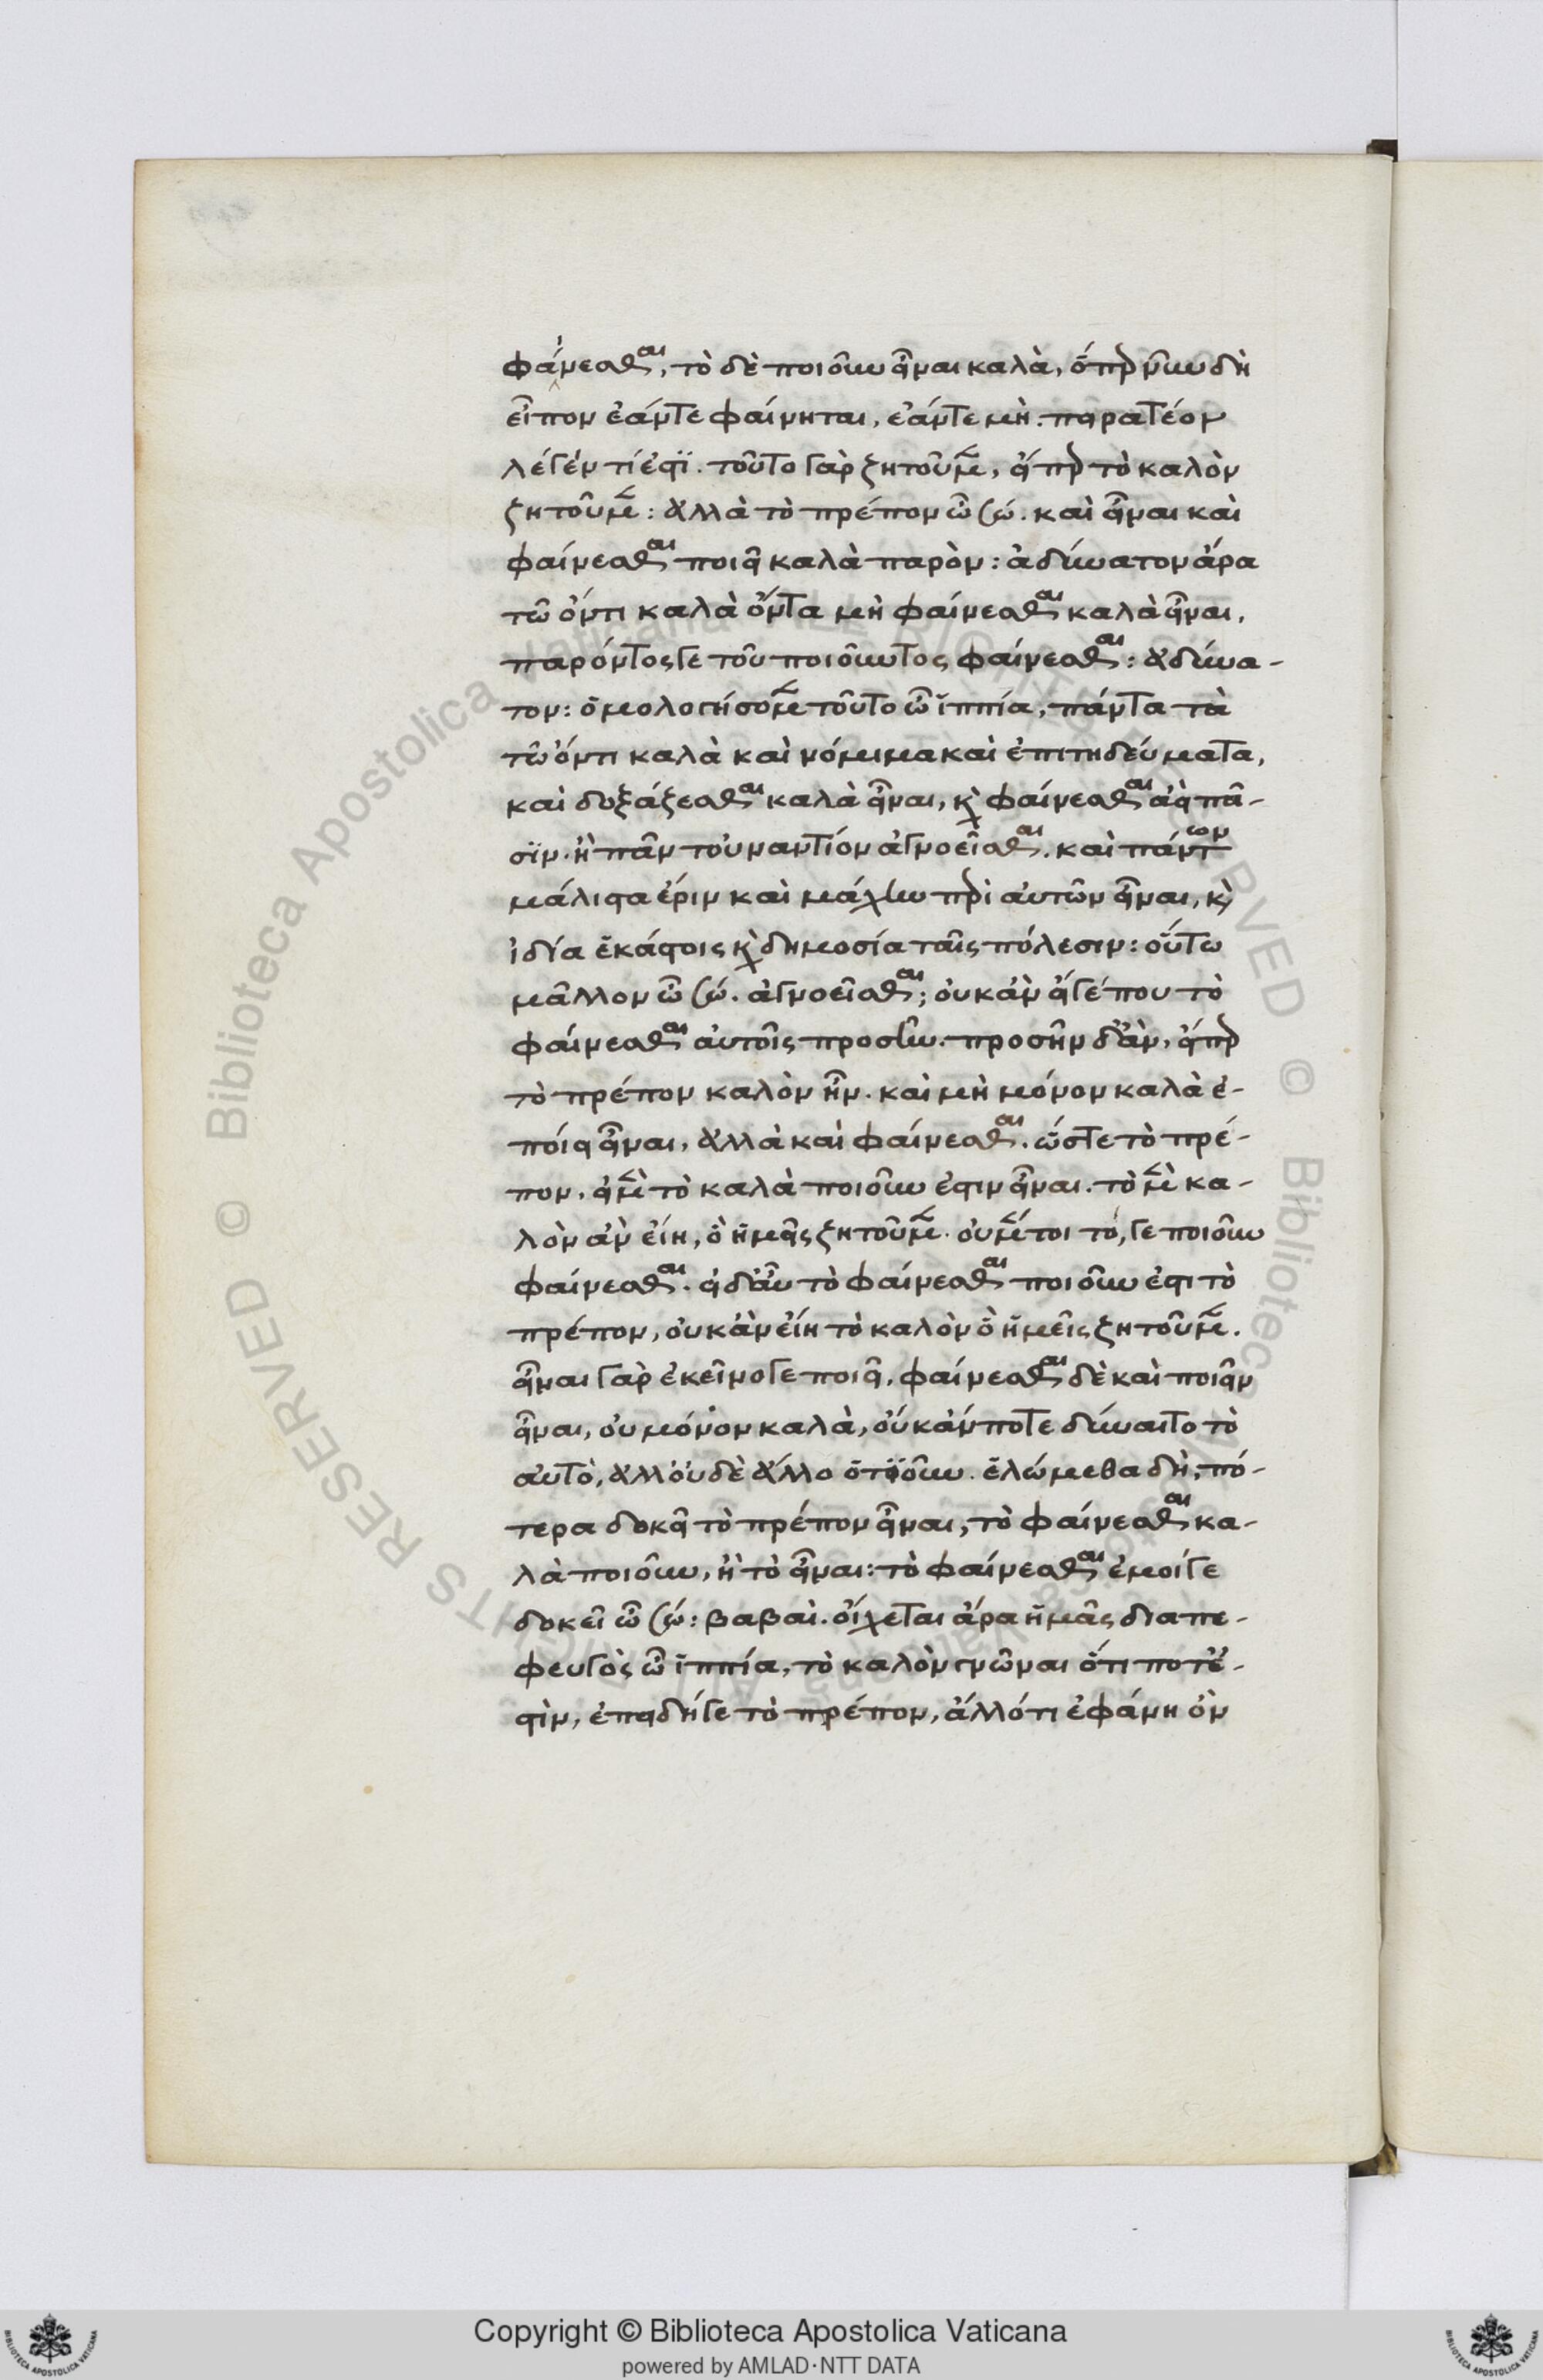 φαίνεσθαι, τὸ δὲ ποιοῦν εἶναι καλὰ, ὅπερ νῦν δὴ
εἶπον ἐάντε φαίνηται, ἐάντε μὴ. πειρατέον
λέγειν τί ἐστι. τοῦτο γὰρ ζητοῦμεν, εἴπερ τὸ καλὸν
ζητοῦμεν: ἀλλὰ τὸ πρέπον ὦ σώ. καὶ εἶναι καὶ
φαίνεσθαι ποιεῖ καλὰ παρὸν: ἀδύνατον ἄρα
τῶ ὄντι καλὰ ὄντα μὴ φαίνεσθαι καλὰ εἶναι,
παρόντος γε τοῦ ποιοῦντος φαίνεσθαι: ἀδύνα-
τον: ὁμολογήσομεν τοῦτο ὦ ἱππία, πάντα τὰ
τῶ ὄντι καλὰ καὶ νόμιμα καὶ ἐπιτηδεύματα,
καὶ δοξάζεσθαι καλὰ εἶναι, κ̀ φαίνεσθαι ἀεὶ πᾶ-
σϊν. ἢ πᾶν τοὐναντίον ἀγνοεῖσθαι. καὶ πάντων
μάλιστα ἔριν καὶ μάχην περὶ αὐτῶν εἶναι, κ̀
ἰδία ἑκάστοις κ̀ δημοσία ταῖς πόλεσιν: οὕτω
μᾶλλον ὦ σώ. ἀγνοεῖσθαι; οὐκ ἂν εἴ γέ που τὸ
φαίνεσθαι αὐτοῖς προσῆν. προσῆν δ' ἂν, εἴπερ
τὸ πρέπον καλὸν ἦν. καὶ μὴ μόνον καλὰ ἐ-
ποίει εἶναι, ἀλλὰ καὶ φαίνεσθαι. ὥστε τὸ πρέ-
πον, εἰ μὲν τὸ καλὰ ποιοῦν ἐστιν εἶναι. τὸ μὲν κα-
λὸν ἂν εἴη, ὃ ἡμεῖς ζητοῦμεν. οὐ μέντοι τό, γε ποιοῦν
φαίνεσθαι. εἰ δ' αὖ τὸ φαίνεσθαι ποιοῦν ἐστι τὸ
πρέπον, οὐκ ἂν εἴη τὸ καλὸν ὃ ἡμεῖς ζητοῦμεν.
εἶναι γὰρ ἐκεῖνο γε ποιεῖ, φαίνεσθαι δὲ καὶ ποιεῖν
εἶναι, οὐ μόνον καλὰ, οὐκ ἄν ποτε δύναιτο τὸ
αὐτὸ, ἀλλ' οὐδὲ ἄλλο ὁτϊοῦν. ἑλώμεθα δὴ, πό-
τερα δοκεῖ τὸ πρέπον εἶναι, τὸ φαίνεσθαι κα-
λὰ ποιοῦν, ἢ τὸ εἶναι: τὸ φαίνεσθαι ἐμοιγε
δοκεῖ ὦ σώ: βαβαὶ. οἴχεται ἄρα ἡμᾶς διαπε-
φευγὸς ὦ ἱππία, τὸ καλὸν γνῶναι ὅτι ποτέ-
στὶν, ἐπειδήγε τὸ πρέπον, ἄλλό τι ἐφάνη ὂν
Copyright © Biblioteca Apostolica Vaticana
powered by AMLAD·NTT DATA